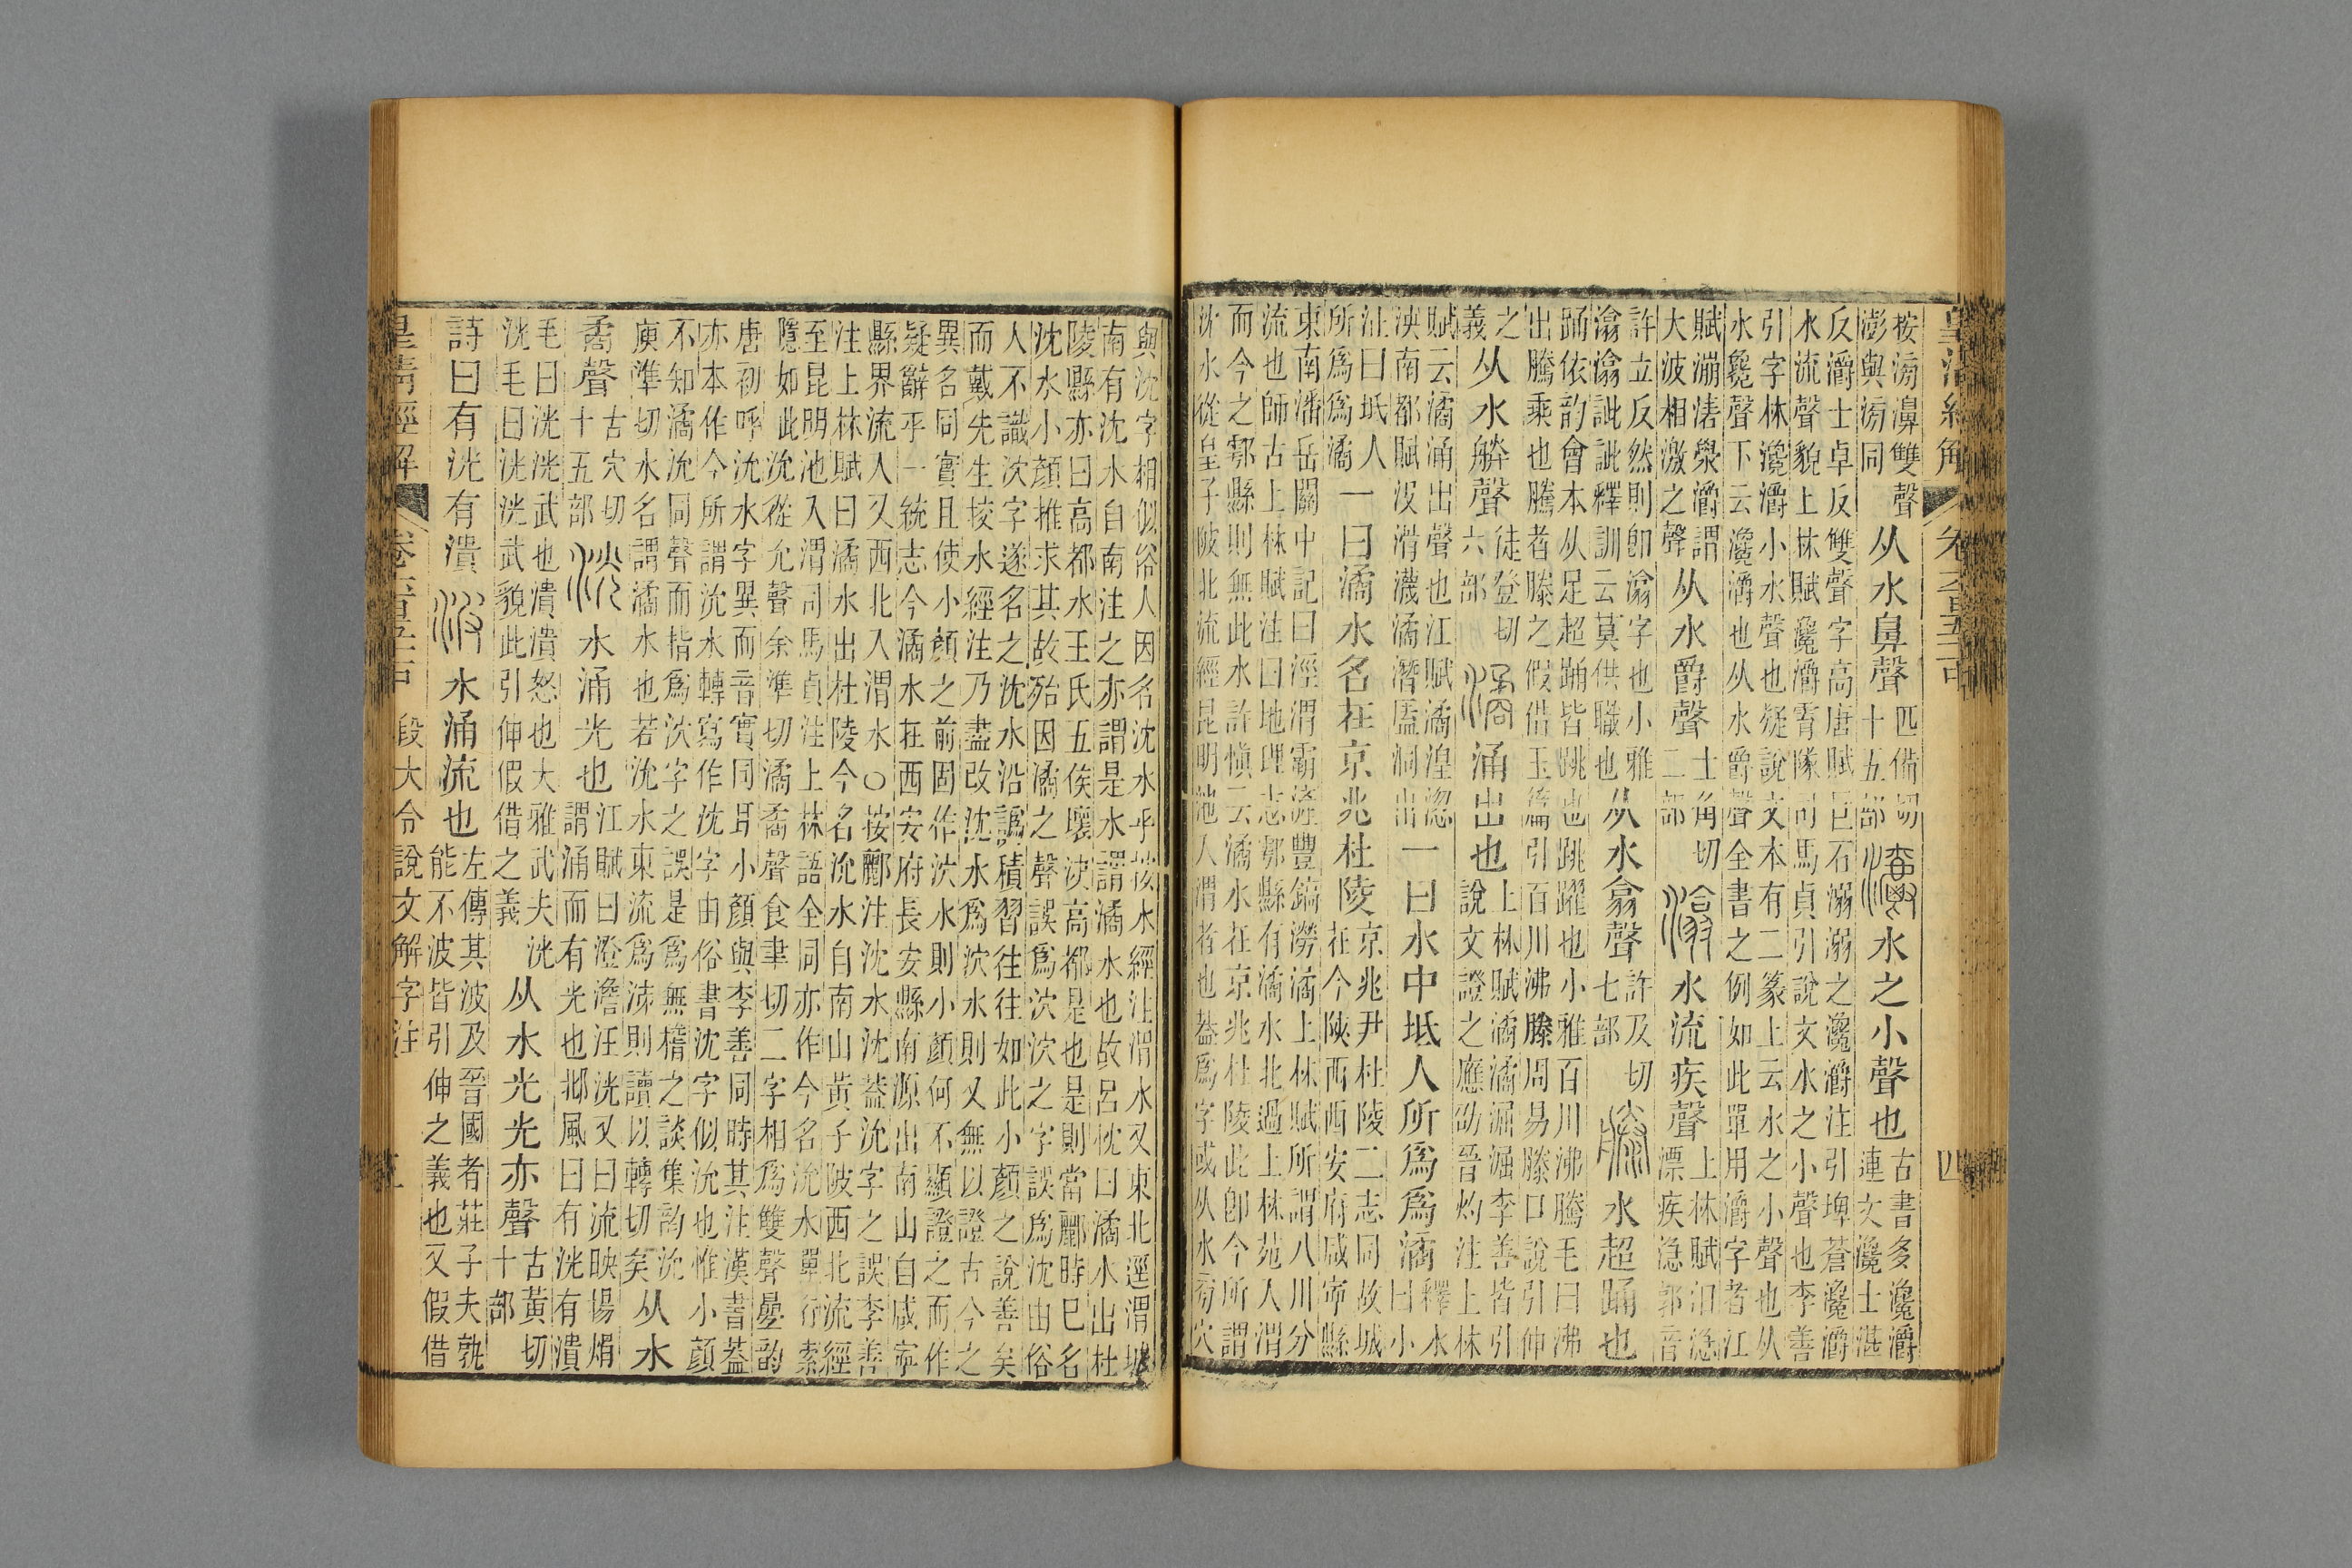 皇清經解
按滂濞雙聲
澎與滂同
从水鼻聲
匹備切
十五部
灂水之小聲也
古書多瀺灂
連文瀺士湛
反灂士卓反雙聲字高唐賦巨石溺溺之瀺灂注引埤蒼瀺灂
水流聲貌上林賦瀺灂霣隊司馬貞引說文水之小聲也李善
引字林瀺灂小水聲也疑說文本有二篆上云水之小聲也从
水毚聲下云瀺灂也从水爵聲全書之例如此單用灂字者江
賦漰湱澩灂謂
大波相激之聲
从水爵聲
士角切
二部
潝水流疾聲
上林賦汩㴔
漂疾㴔郭音
許立反然則卽潝字也小雅
潝潝訿訿釋訓云莫供職也
从水翕聲
許及切
七部
滕水超踊也
踊依韵會本从足超踊皆跳也跳躍也小雅百川沸騰毛曰沸
出騰乘也騰者滕之假借玉篇引百川沸滕周易滕口說引伸
之
義
从水朕聲
徒登切
六部
潏涌出也
上林賦潏潏淈淈李善皆引
說文證之應劭晉灼注上林
賦云潏涌出聲也江賦潏湟淴
泱南都賦沒滑瀎潏潛㕎洞出
一曰水中坻人所爲爲潏
釋水
曰小
沚曰坻人
所爲爲潏
一曰潏水名在京兆杜陵
京兆尹杜陵二志同故城
在今陝西西安府咸寧縣
東南潘岳關中記曰涇渭霸滻豐鎬澇潏上林賦所謂八川分
流也師古上林賦注曰地理志鄠縣有潏水北過上林苑入渭
而今之鄠縣則無此水許愼云潏水在京兆杜陵此卽今所謂
沈水從皇子陂北流經昆明池入渭者也葢爲字或从水旁穴
四
與沈字相似俗人因名沈水乎按水經注渭水又東北逕渭城
南有沈水自南注之亦謂是水謂潏水也故呂忱曰潏水出杜
陵縣亦曰高都水王氏五侯壞決高都是也是則當酈時已名
沈水小顏推求其故殆因潏之聲誤爲泬泬之字誤爲沈由俗
人不識泬字遂名之沈水沿譌積習往往如此小顏之說善矣
而戴先生挍水經注乃盡改沈水爲泬水則又無以證古今之
異名同實且使小顏之前固作泬水則小顏何不顯證之而作
疑辭乎一統志今潏水在西安府長安縣南源出南山自咸寧
縣界流入又西北入渭水○按酈注沈水沈葢沇字之誤李善
注上林賦曰潏水出杜陵今名沇水自南山黃子陂西北流經
至昆明池入渭司馬貞注上林語全同亦作今名沇水單行索
隱如此沇從允聲余準切潏矞聲食聿切二字相爲雙聲疊韵
唐初呼沇水字異而音實同耳小顏與李善同時其注漢書葢
亦本作今所謂沇水轉寫作沈字由俗書沇字似沈也惟小顏
不知潏沇同聲而指爲泬字之誤是爲無稽之談集韵沇
庾準切水名謂潏水也若沇水東流爲泲則讀以轉切矣
从水
矞聲
古穴切
十五部
洸水涌光也
江賦曰澄澹汪洸又曰流映揚焆
謂涌而有光也邶風曰有洸有潰
毛曰洸洸武也潰潰怒也大雅武夫洸
洸毛曰洸洸武貌此引伸假借之義
从水光光亦聲
古黃切
十部
詩曰有洸有潰波水涌流也
左傳其波及晉國者莊子夫孰
能不波皆引伸之義也又假借
皇清經解
段大令說文解字注